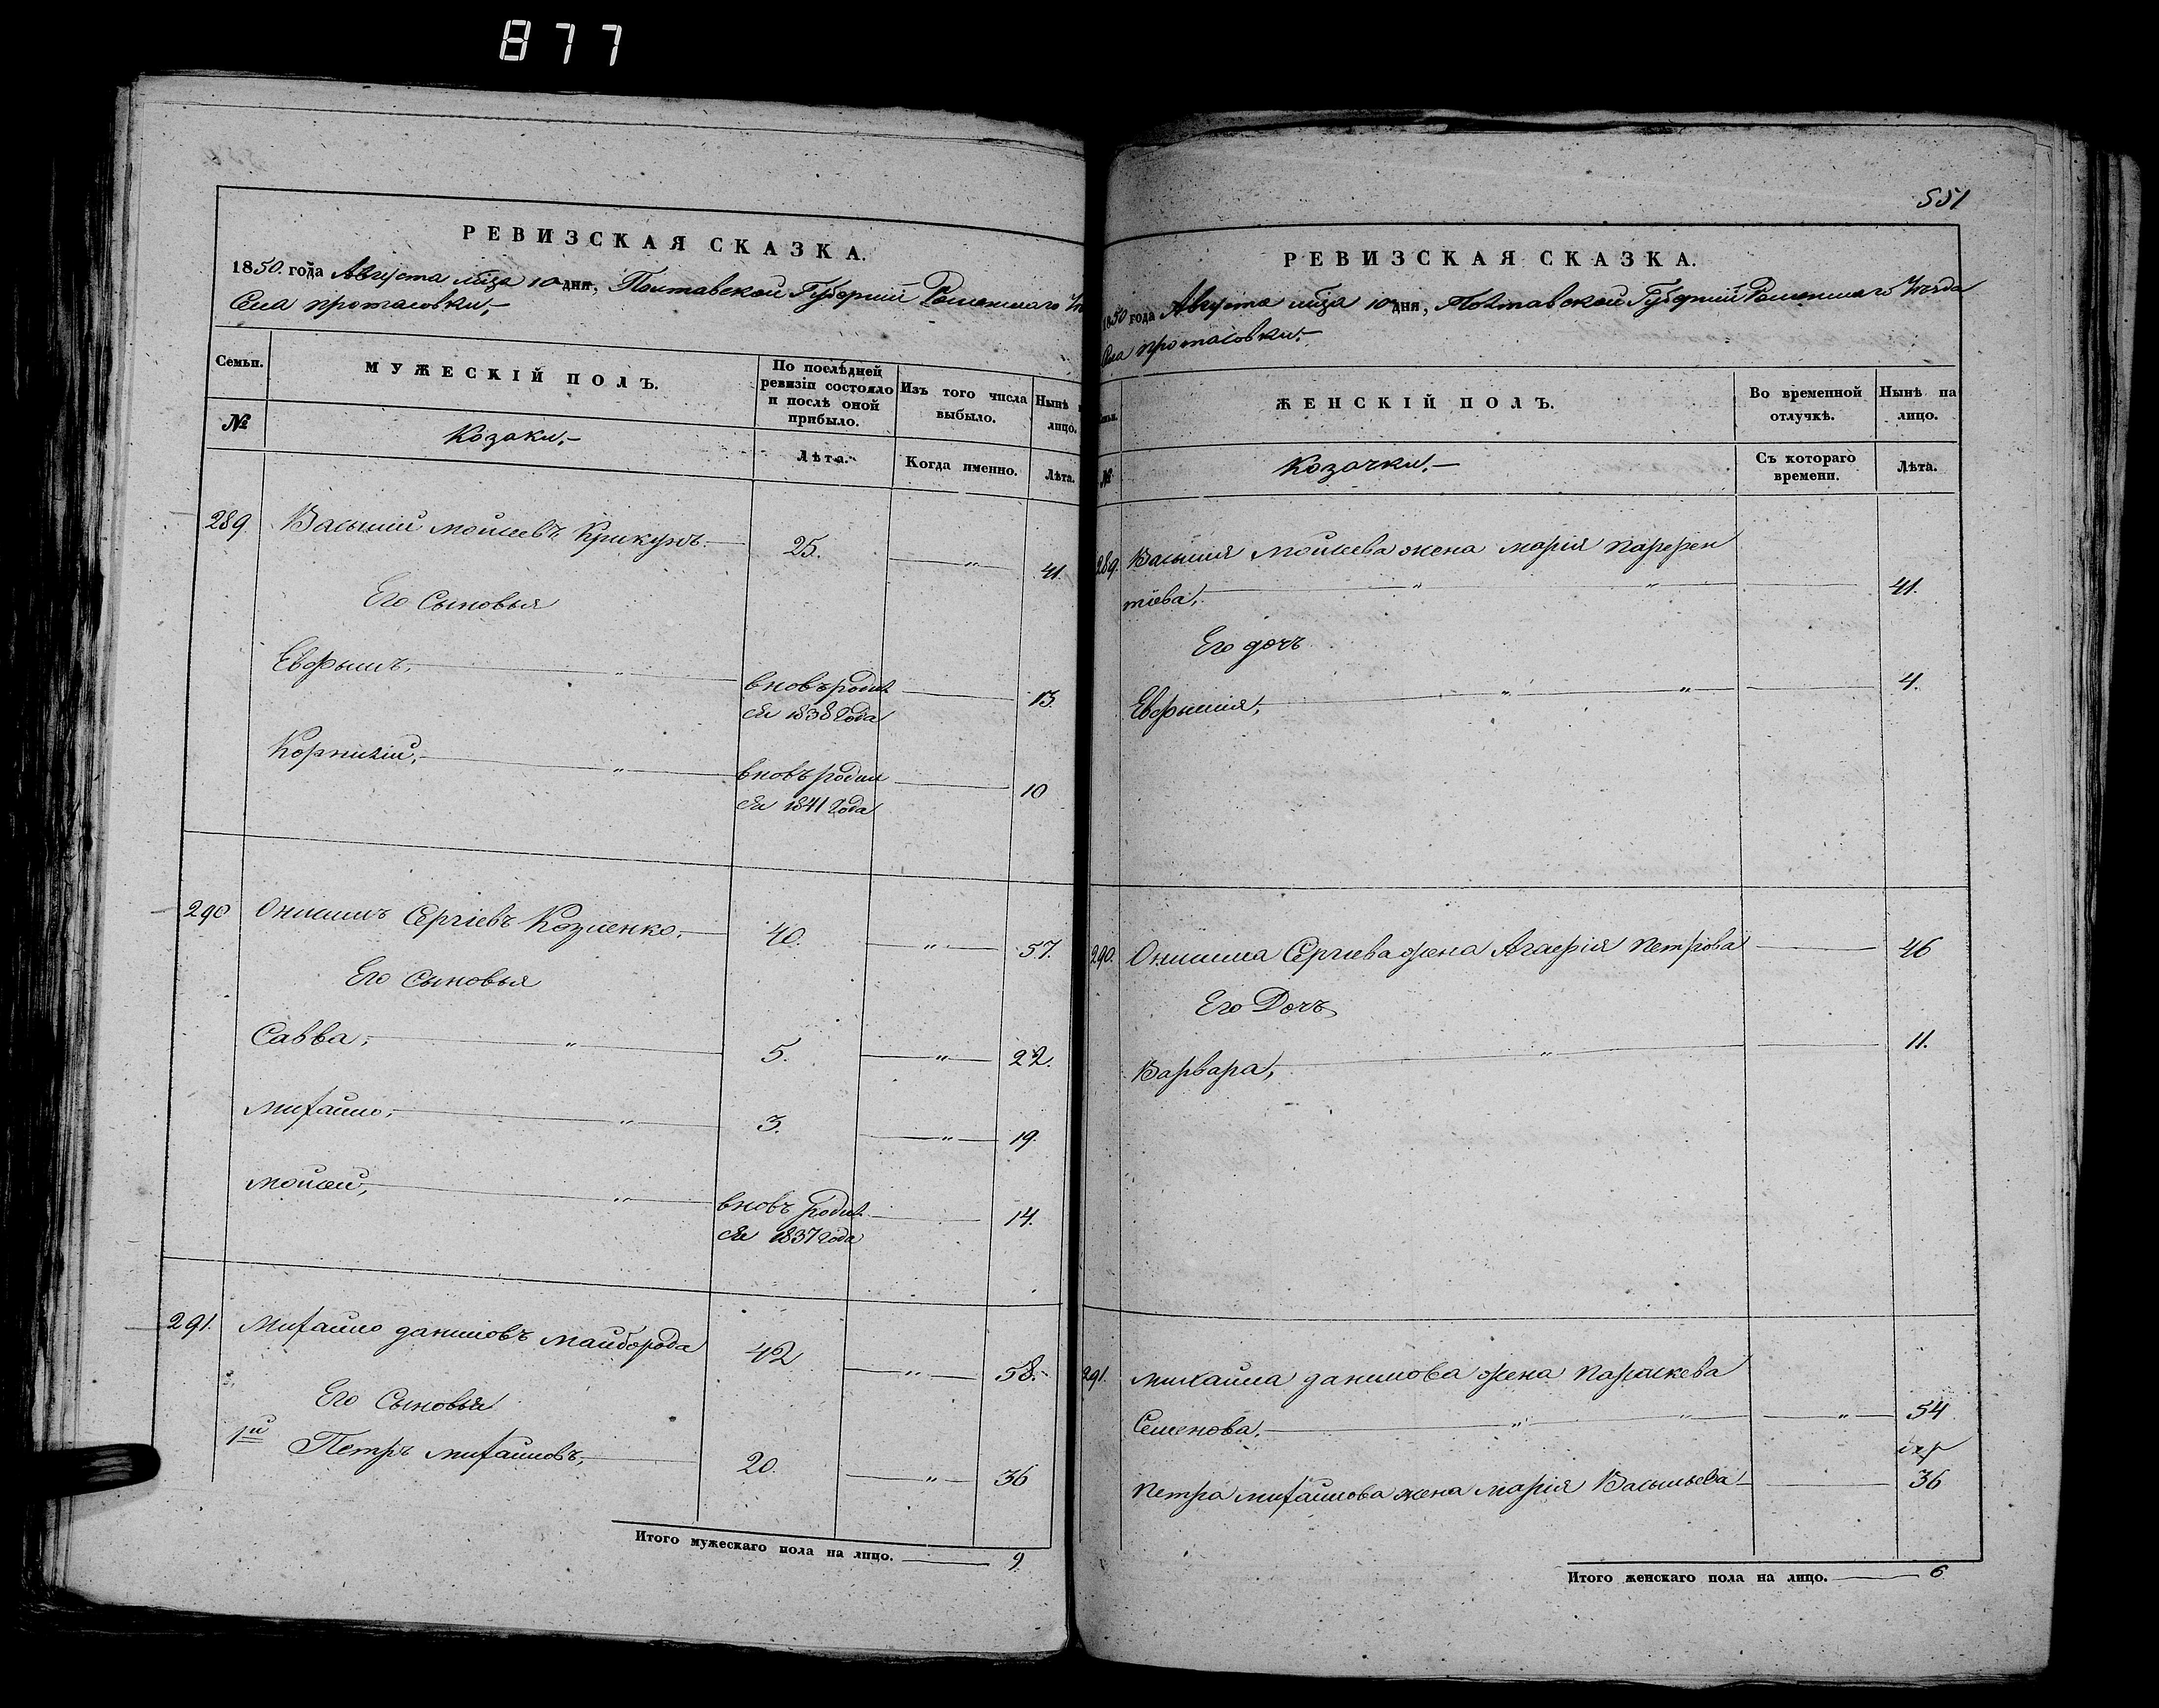 877
РЕВИЗСКАЯ СКАЗКА.
1850. года Августа мѣца 10 дня, Полтавской Губерніи Роменского
Села Протасовки,
Семьи.
МУЖЕСКІЙ ПОЛЪ.
По послѣдней ревизіи состояло и послѣ оной прибыло.
Изъ того числа выбыло.
Нынѣ
лицо.
№
Козаки,
Лѣта.
Когда именно.
Лѣта.
289. Василий Моисеевъ Крикунъ. 25. " 41.
Его Сыновья
Евфимъ, " вновь родил
ся 1838 года 13.
Корнилій, " вновь родил
ся 1841 года 10
290 Онисимъ Сергіевъ Козленко, 40. " 57.
Его Сыновья
Савва, " 5. " 22.
Михайло, " 3. " 19.
Моисей, " вновь родил
ся 1837 года 14.
291. Михайло Даниловъ Майборода 42 " 58.
Его Сыновья
1й Петръ Михайловъ, 20. " 36
Итого мужескаго пола на лицо. 9.
551
РЕВИЗСКАЯ СКАЗКА.
1850 года Августа мѣца 10 дня, Полтавской Губерніи Роменского Уезда
Села Протасовки,
ЖЕНСКІЙ ПОЛЪ.
Во временной отлучкѣ.
Нынѣ на лицо.
№
Козачки,
Съ котораго времени.
Лѣта.
289. Василия Моисеева жена Марія Парфен
тіева, " " 41.
Его дочь
Евфимия, " " 4.
290. Онисима Сергиева жена Агафія Петрова 46
Его Дочь
Варвара, " 11.
291. Михайла Данилова жена Параскева
Семенова, " " " 54
Петра Михайлова жена Марія Васильева 36
Итого женскаго пола на лицо. 6